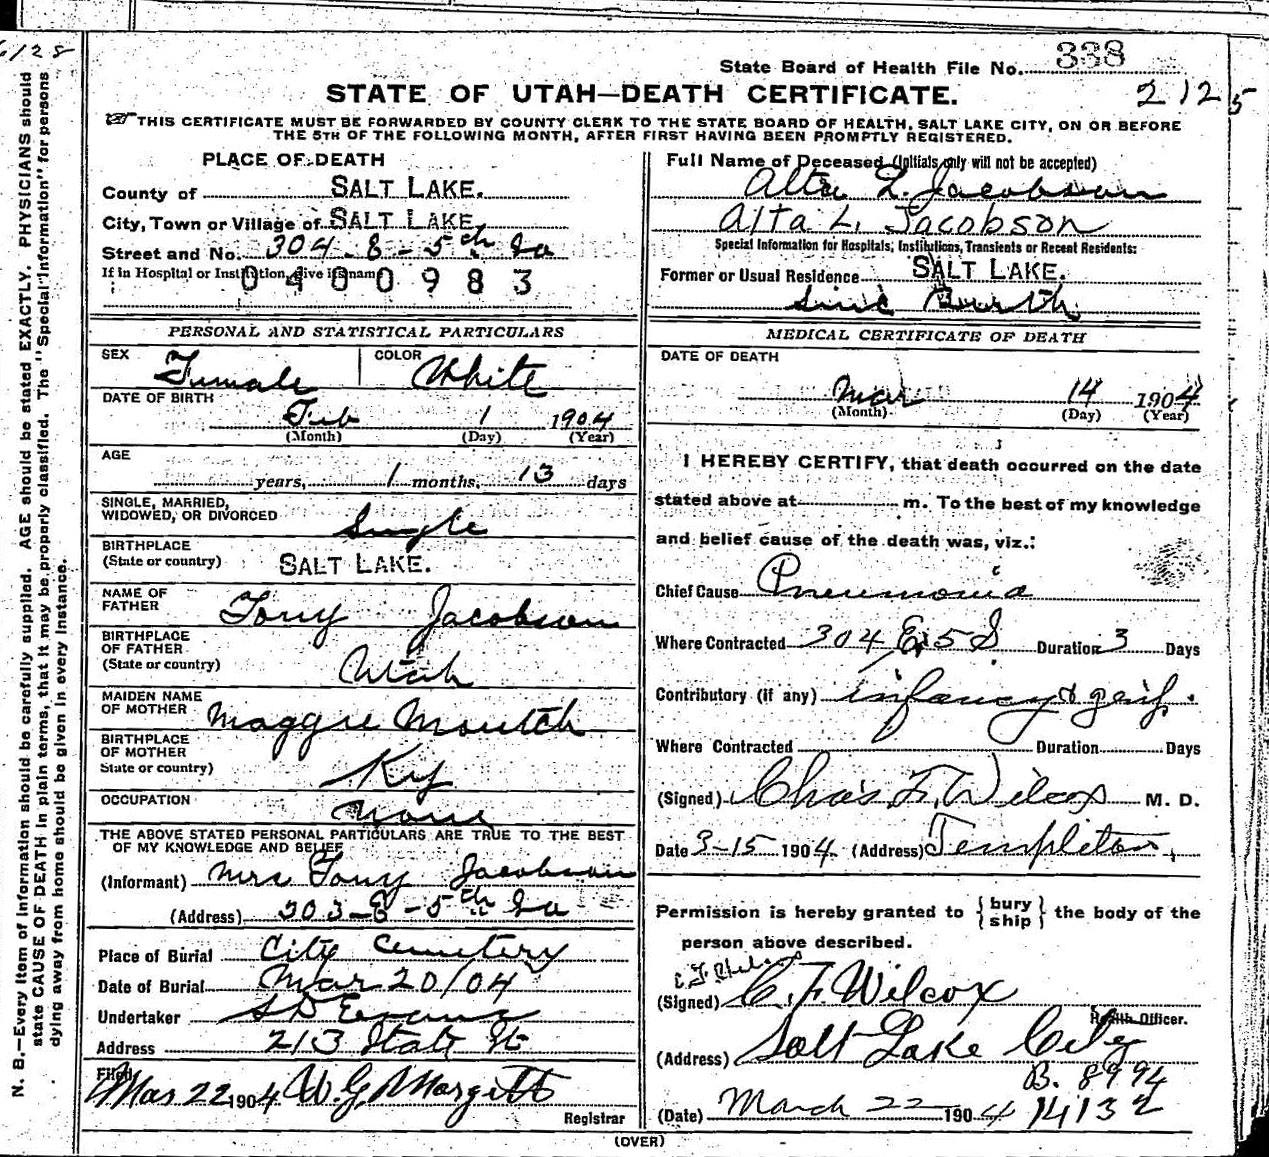 6/28
State Board of Health File No. 338
STATE OF UTAH—DEATH CERTIFICATE.
2125
THIS CERTIFICATE MUST BE FORWARDED BY COUNTY CLERK TO THE STATE BOARD OF HEALTH, SALT LAKE CITY, ON OR BEFORE
THE 5TH OF THE FOLLOWING MONTH, AFTER FIRST HAVING BEEN PROMPTLY REGISTERED.
PLACE OF DEATH
County of SALT LAKE.
City, Town or Village of SALT LAKE
Street and No. 304 E - 5th So
If in Hospital or Institution, give its name
0400983
PERSONAL AND STATISTICAL PARTICULARS
SEX Female COLOR White
DATE OF BIRTH
Feb 1 1904
(Month) (Day) (Year)
AGE
years, 1 months, 13 days
SINGLE, MARRIED,
WIDOWED, OR DIVORCED Single
BIRTHPLACE
(State or country) SALT LAKE.
NAME OF
FATHER Tony Jacobson
BIRTHPLACE
OF FATHER
(State or country) Utah
MAIDEN NAME
OF MOTHER Maggie Moutch
BIRTHPLACE
OF MOTHER
State or country) Ky
OCCUPATION None
THE ABOVE STATED PERSONAL PARTICULARS ARE TRUE TO THE BEST
OF MY KNOWLEDGE AND BELIEF
(Informant) Mrs Tony Jacobson
(Address) 303-E-5th So
Place of Burial City Cemetery
Date of Burial Mar 20/04
Undertaker S D Evans
Address 213 State St
Filed Mar 22 1904 W.G.
Registrar
Full Name of Deceased (Initials only will not be accepted)
Alta L. Jacobson
Alta L. Jacobson
Special Information for Hospitals, Institutions, Transients or Recent Residents:
Former or Usual Residence SALT LAKE.
Since Birth
MEDICAL CERTIFICATE OF DEATH
DATE OF DEATH
Mar 14 1904
(Month) (Day) (Year)
I HEREBY CERTIFY, that death occurred on the date
stated above at m. To the best of my knowledge
and belief cause of the death was, viz.:
Chief Cause Pneumonia
Where Contracted 304 E. 5 S Duration 3 Days
Contributory (if any) infancy &
Where Contracted Duration Days
(Signed) Chas F. Wilcox M. D.
Date 3-15 1904. (Address) Templeton,
Permission is hereby granted to {bury ship} the body of the
person above described.
(Signed) C. F. Wilcox
Health Officer.
(Address) Salt Lake City
B. 8994
(Date) March 22 1904 14132
(OVER)
N. B.—Every item of information should be carefully supplied. AGE should be stated EXACTLY. PHYSICIANS should
state CAUSE OF DEATH in plain terms, that it may be properly classified. The "Special Information" for persons
dying away from home should be given in every instance.